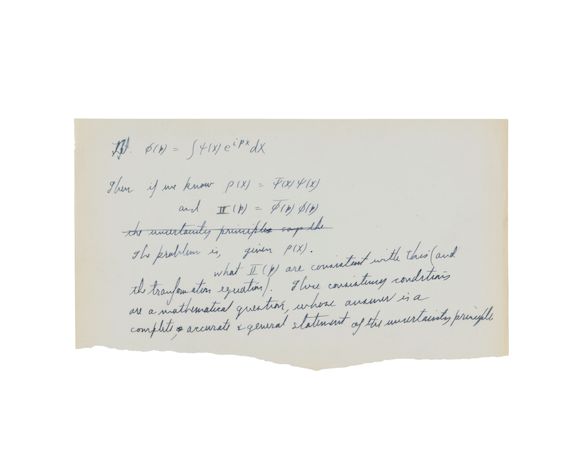 If. ϕ(p) = ∫ψ(x) e^{ipx} dx
Then if we know ρ(x) = ψ̄(x) ψ(x)
and Π(p) = ϕ̄(p) ϕ(p)
the uncertainty principle says the
The problem is, given ρ(x).
what Π(p) are consistent with this (and
the transformation equation). These consistency conditions
are a mathematical question, whose answer is a
complete, accurate & general statement of the uncertainty principle